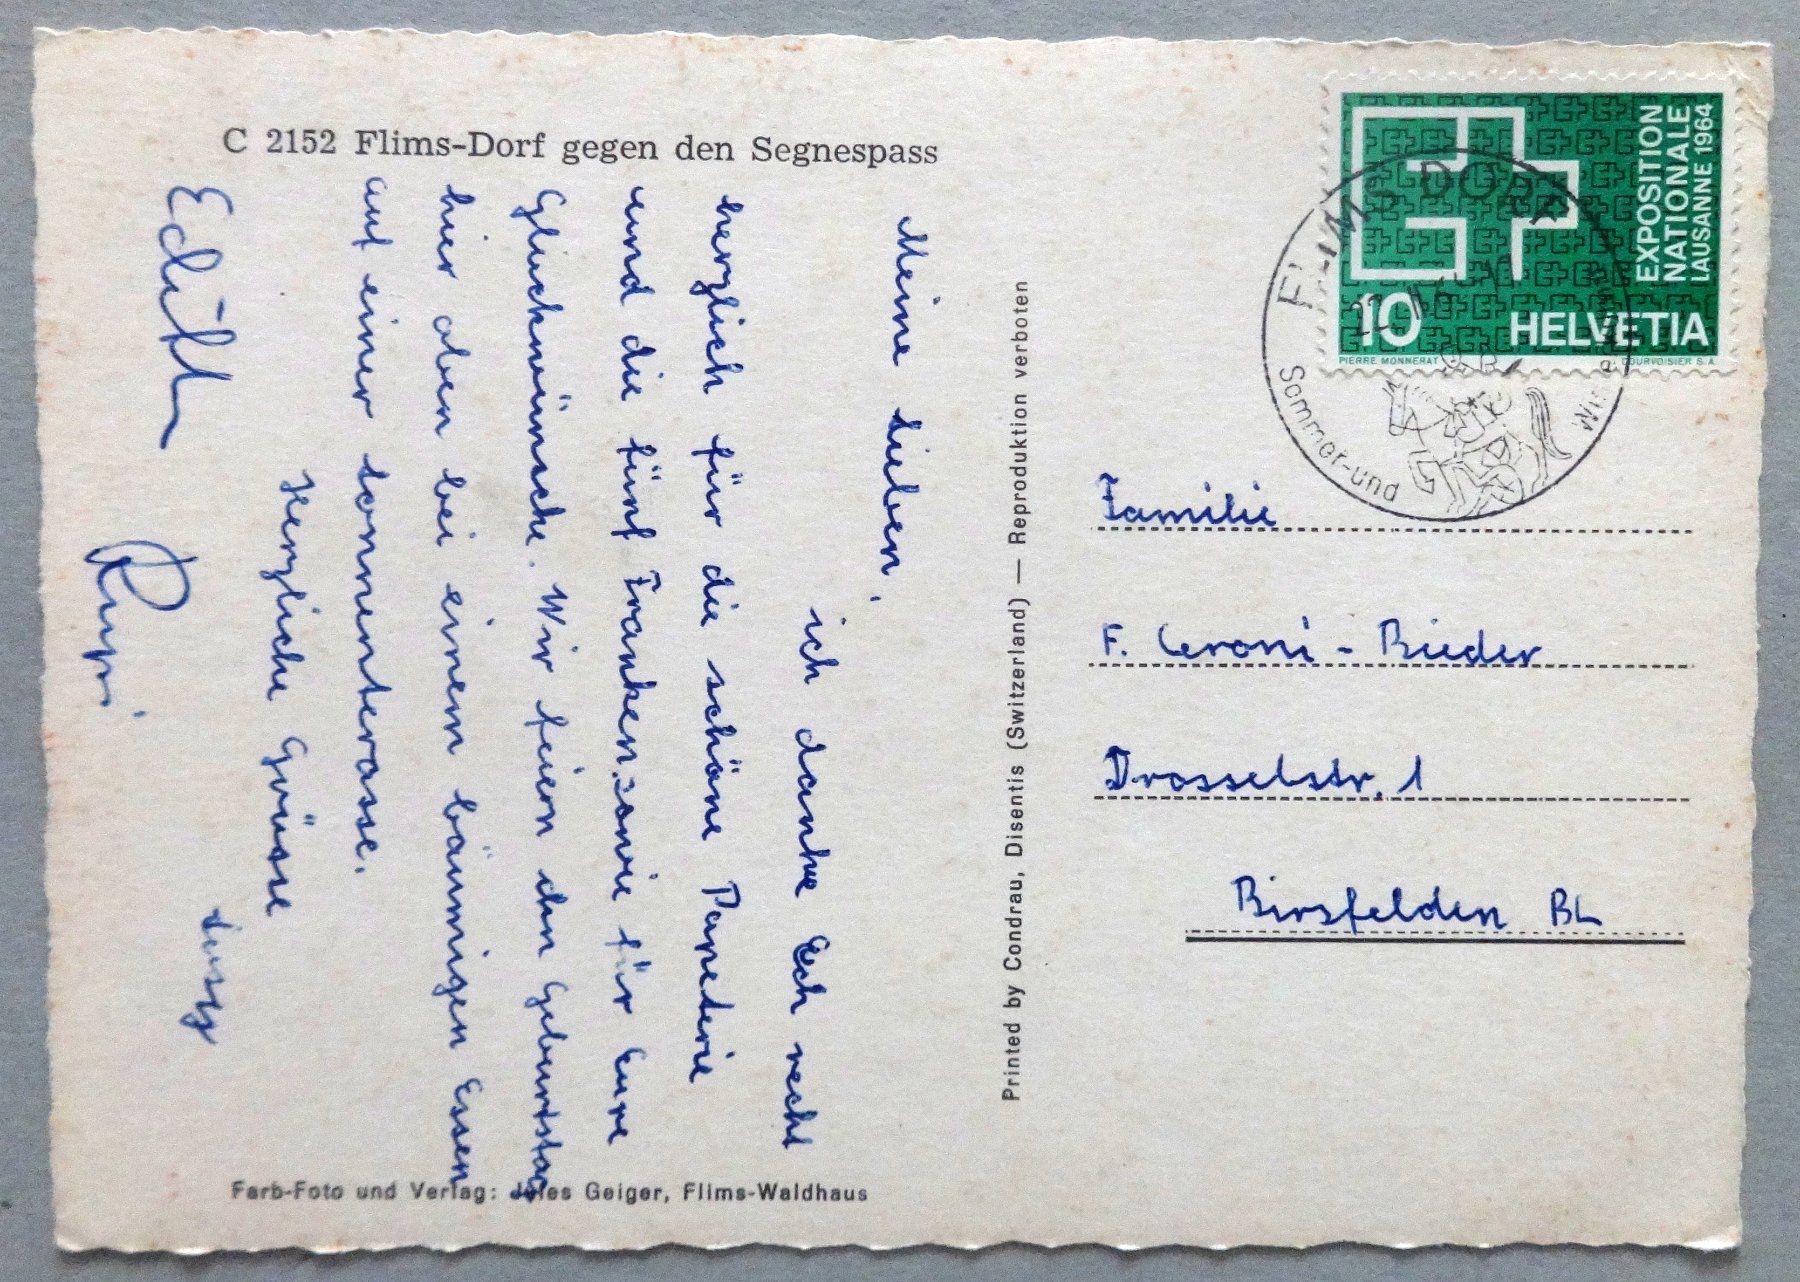 C 2152 Flims-Dorf gegen den Segnespass
Meine Lieben,
ich danke Euch recht
herzlich für die schöne Papeterie
und die fünf Franken sowie für Eure
Glückwünsche. Wir feiern den Geburtstag
hier oben bei einem bäumigen Essen
auf einer Sonnenterasse.
Herzliche Grüsse
Susy
Edith
Ruppi
Farb-Foto und Verlag: Jules Geiger, Flims-Waldhaus
Printed by Condrau, Disentis (Switzerland) — Reproduktion verboten
EXPOSITION
NATIONALE
LAUSANNE 1964
10
HELVETIA
PIERRE MONNERAT
COURVOISIER S.A.
FLIMS DORF
Sommer-und
Familie
F. Ceroni - Rieder
Drosselstr. 1
Birsfelden BL